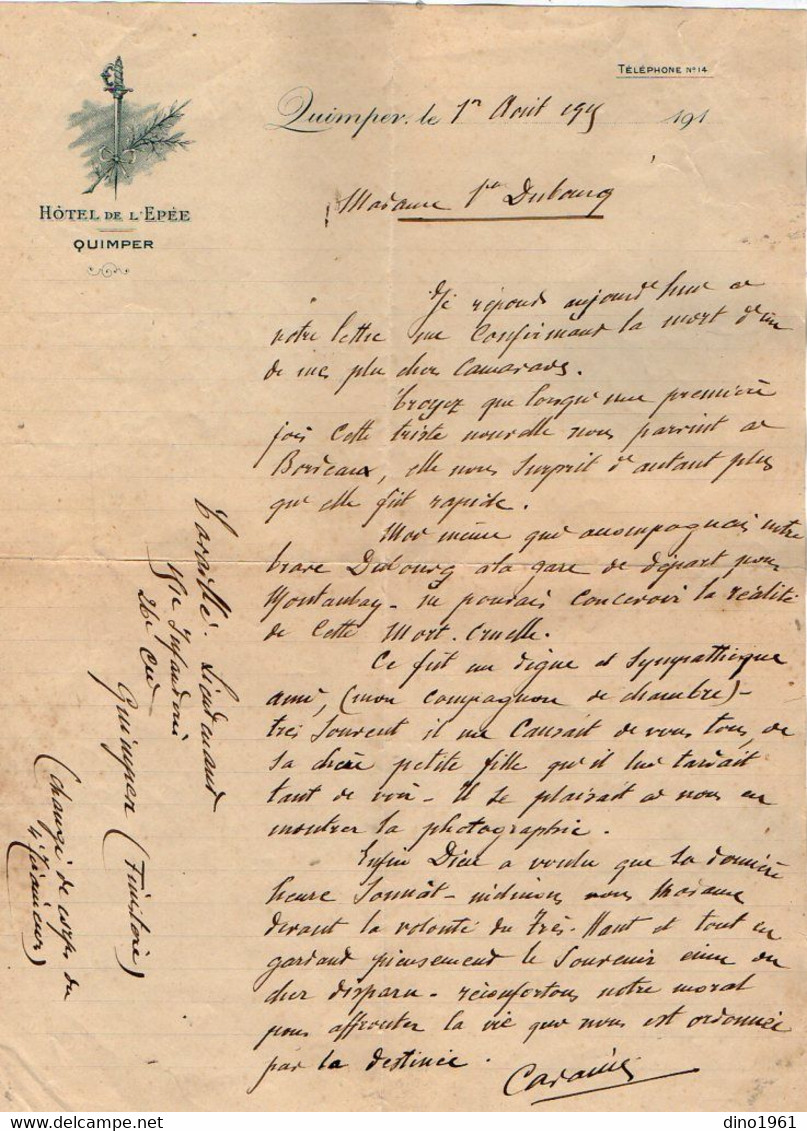 TÉLÉPHONE N° 14
HÔTEL DE L'EPÉE
QUIMPER
Quimper, le 1er Août 1915 191
Madame Dubourg
Je réponds aujourd'hui a
votre lettre me confirmant la mort d'un
de mes plu cher camarades.
Croyez que lorsqu'une première
fois cette triste nouvelle nous parvint a
Bordeaux, elle nous surprit d'autant plus
qu'elle fut rapide.
Moi même qui accompagnais votre
brave Dubourg a la gare de départ pour
Montauban - ne pouvais concevoir la réalité
de cette mort cruelle.
Ce fut un digne et sympathique
ami, (mon compagnon de chambre) -
très souvent il me causait de vous tous, de
sa chère petite fille qu'il lui tardait
tant de voir - Il se plaisait a nous en
montrer la photographie.
Enfin Dieu a voulu que sa dernière
heure sonnât - inclinons nous Madame
devant la volonté du Très-Haut et tout en
gardant pieusement le souvenir ému du
cher disparu - réconfortons notre moral
pour affronter la vie que nous est ordonnée
par la destinée.
Lieutenant
Infanterie
26e Cie
Quimper (Finistère)
(changé de corps du
dino1961